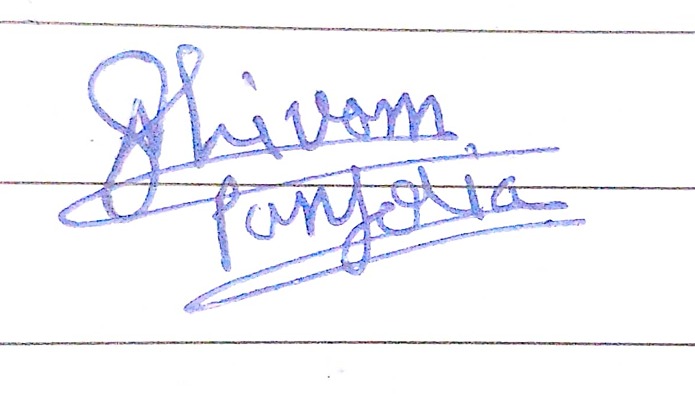 Shivam
Panjoria